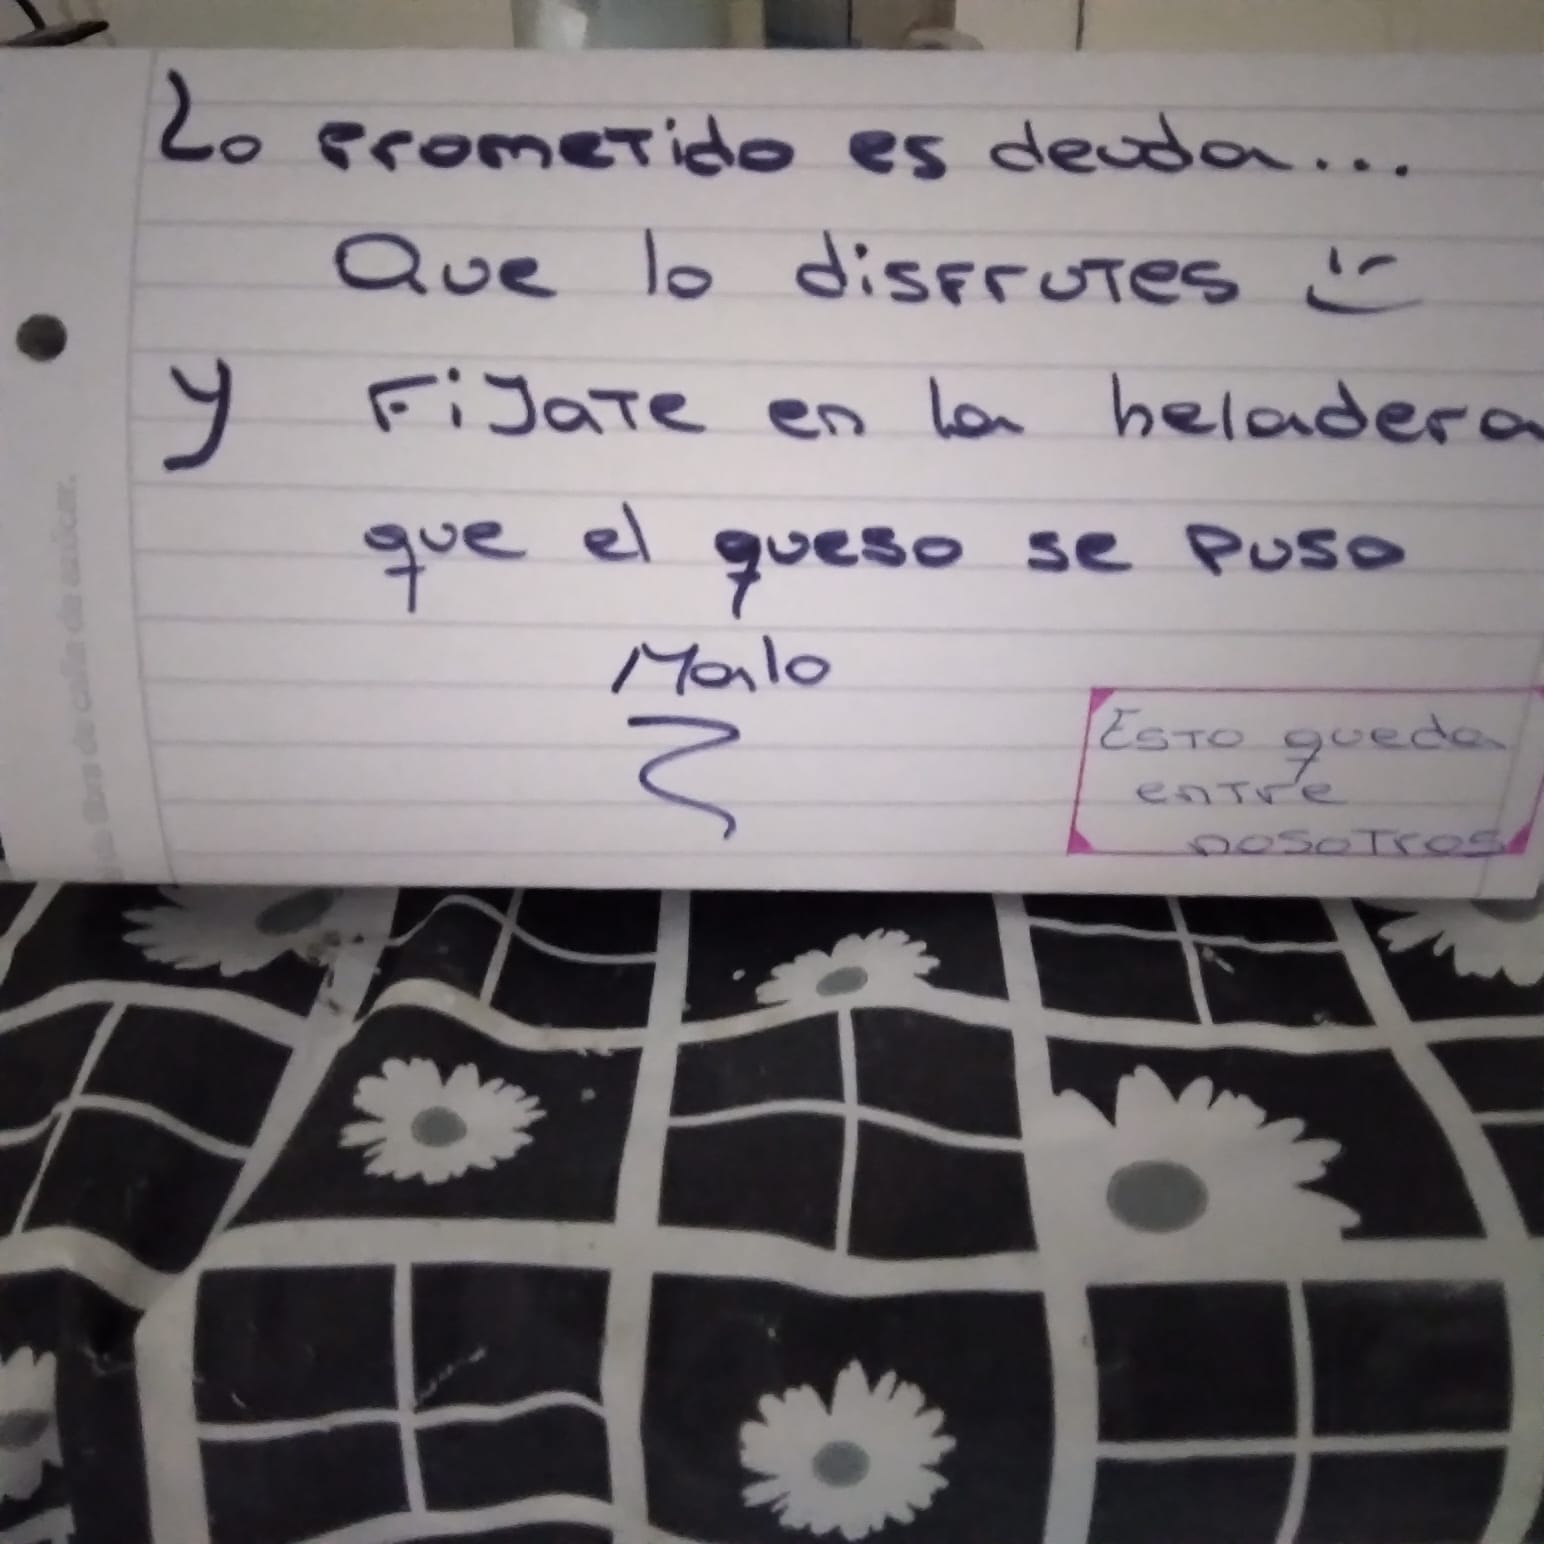 Lo prometido es deuda...
Que lo disfrutes :)
y Fijate en la heladera
que el queso se puso
Malo
Esto queda
entre
nosotros